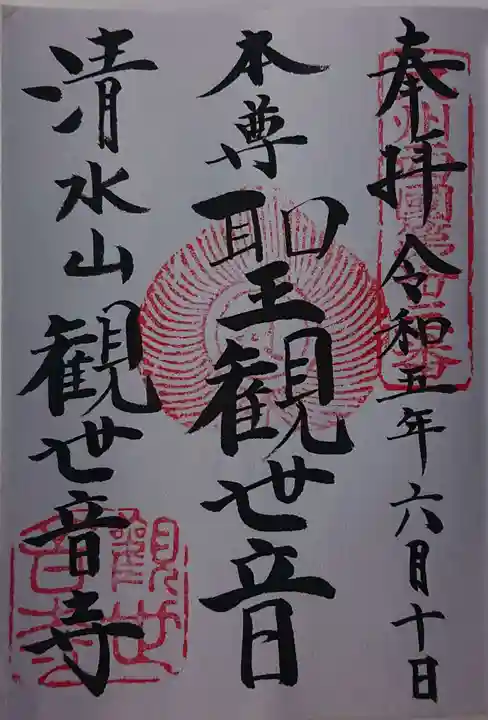 奉拝 令和五年六月十日
本尊 聖観世音
清水山 観世音寺
観世音寺